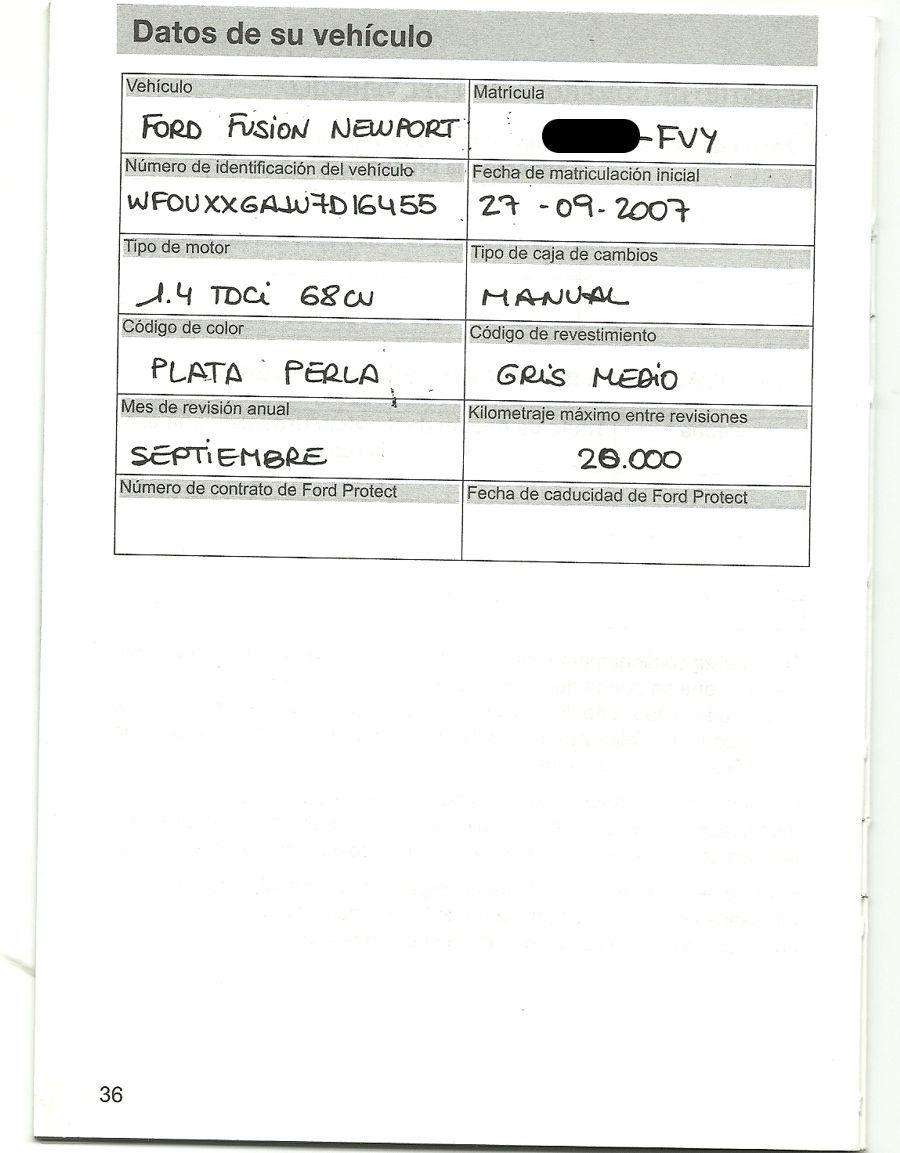 Datos de su vehículo
Vehículo
Matrícula
FORD FUSION NEWPORT
-FVY
Número de identificación del vehículo
Fecha de matriculación inicial
WFOUXXGAJW7D16455
27 -09-2007
Tipo de motor
Tipo de caja de cambios
1.4 TDCi 68CV
MANUAL
Código de color
Código de revestimiento
PLATA PERLA
GRIS MEDIO
Mes de revisión anual
Kilometraje máximo entre revisiones
SEPTIEMBRE
20.000
Número de contrato de Ford Protect
Fecha de caducidad de Ford Protect
36